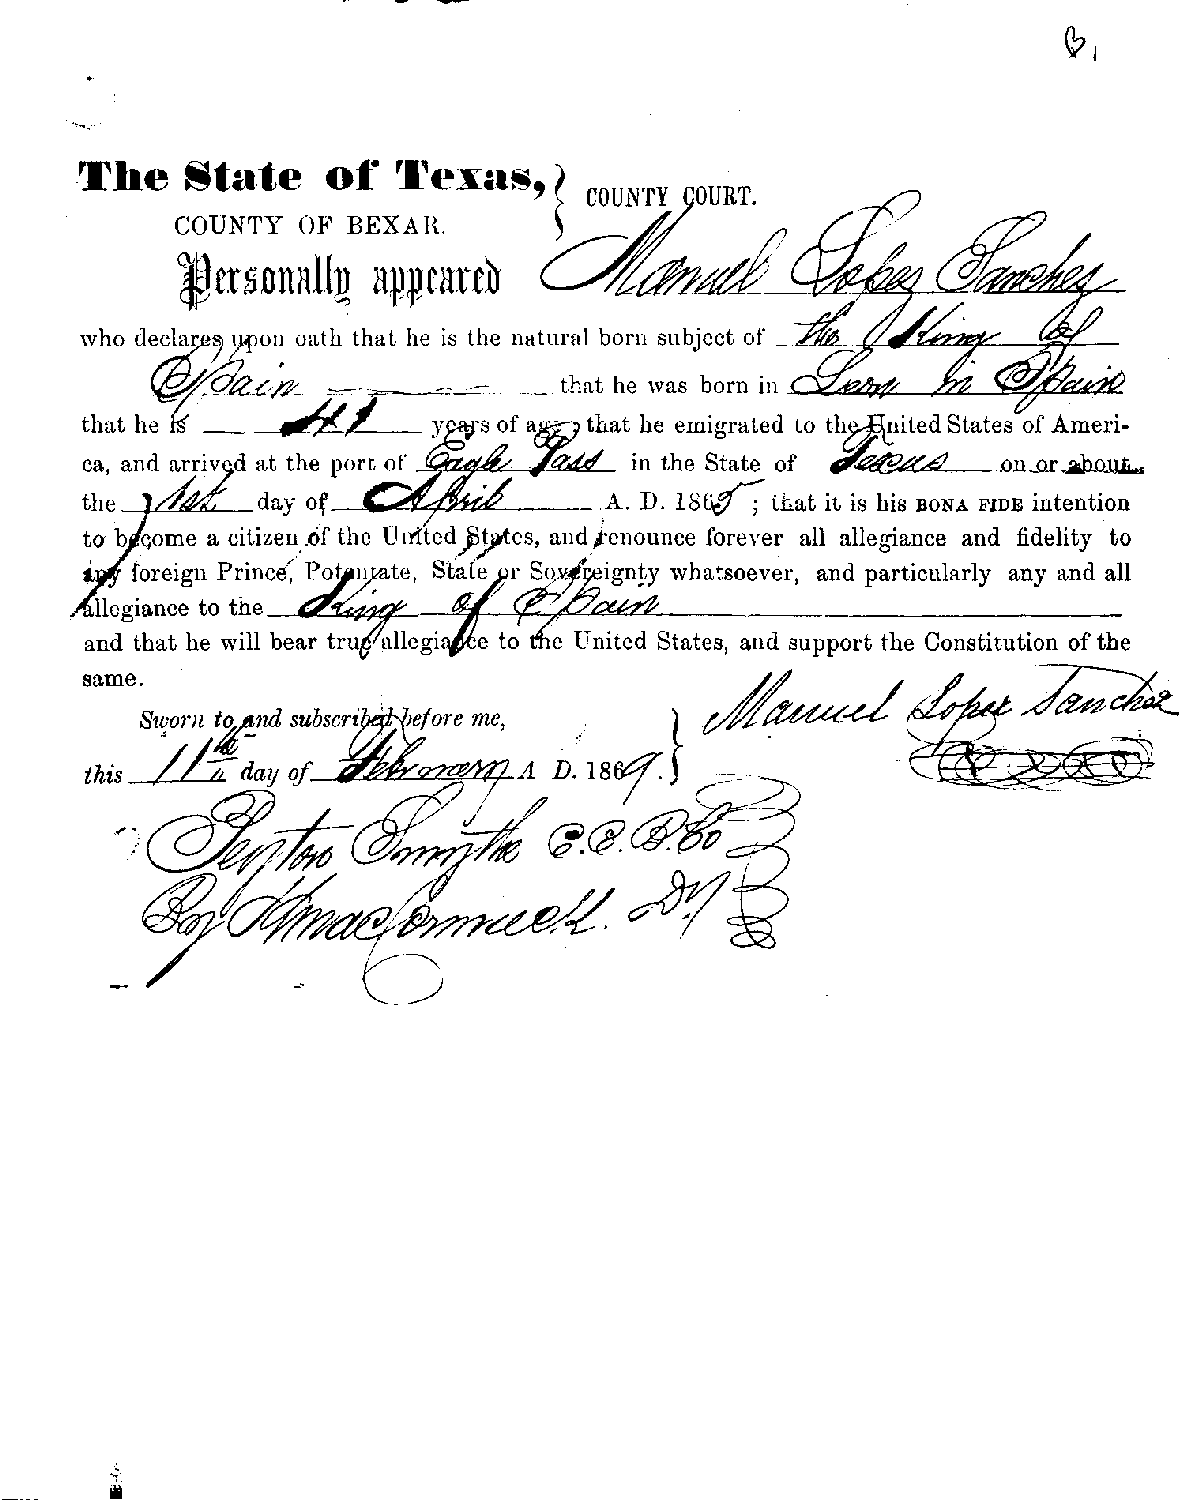 The State of Texas, } COUNTY COURT.
COUNTY OF BEXAR.
Personally appeared Manuel Lopez Sanchez
who declares upon oath that he is the natural born subject of the King of
Spain that he was born in Leon in Spain
that he is 41 years of age; that he emigrated to the United States of Ameri-
ca, and arrived at the port of Eagle Pass in the State of Texas on or about
the 1st day of April A. D. 1865; that it is his BONA FIDE intention
to become a citizen of the United States, and renounce forever all allegiance and fidelity to
any foreign Prince, Potentate, State or Sovereignty whatsoever, and particularly any and all
allegiance to the King of Spain
and that he will bear true allegiance to the United States, and support the Constitution of the
same.
Manuel Lopez Sanchez
Sworn to and subscribed before me,
this 11th day of February A D. 1869. }
Smythe C.C.B.Co
By MacCormick. Dy